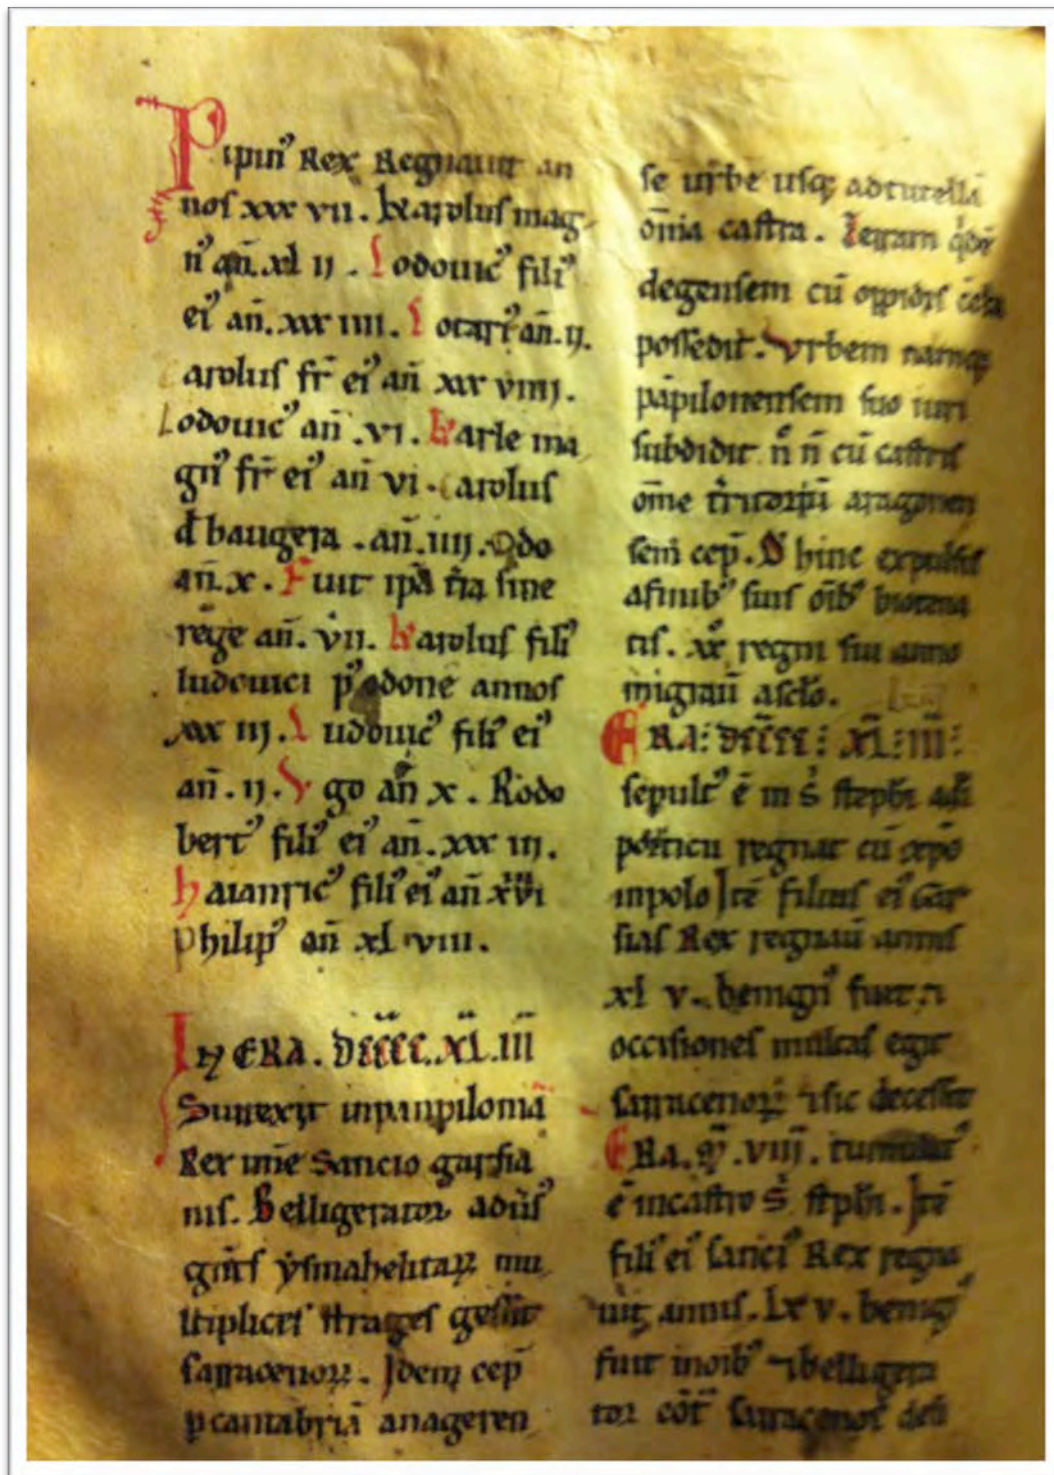 Pipin⁹ Rex Regnauit an
nos xxx vii. karolus mag
n⁹ añ. xl ii. Lodouic⁹ fili⁹
ei⁹ añ. xxx iiii. Lotari⁹ añ. ii.
Carolus fr̄ ei⁹ añ xxx viiii.
Lodouic⁹ añ .vi. karle ma
gn⁹ fr̄ ei⁹ añ vi. Carolus
d baugera . añ. iiii. Odo
añ. x. Fuit ip̄a t̄ra sine
rēge añ. vii. karolus fili⁹
ludouici p⁹ odone annos
xxx iii. Ludouic⁹ fili⁹ ei⁹
añ. ii. Vgo añ x. Rodo
bert⁹ fili⁹ ei⁹ añ. xxx iii.
haianric⁹ fili⁹ ei⁹ añ xxvi
Philip⁹ añ xl viii.
In ERA. DCCCC.XL.III
Surrexit inpanpilonia
Rex nn̄e Sancio garsia
nis. Belligerator adūs⁹
gn̄ts ysmahelitaꝝ mu
ltiplices strages gessit
sarracenoꝝ. Idem cep̄
p cantabriā anageren
se urbe usq; adtutellā
om̄ia castra. Terram
degensem cū oppidis
possedit. Vrbem namq;
pāpilonensem suo iuri
subdidit n n̄ cū castris
om̄e t̄ritoriū aragonen
sem cep̄. D hinc expulsis
afinib⁹ suis oīb⁹ biotena
tis. xx regni sui anno
migrau̅ asc̄lo.
ERA: DCCCC: XL:III:
sepult⁹ ē in S̄ steph̄i
porticu regnat cū xp̄o
inpolo Itē filius ei⁹ Gar
sias Rex regnau̅ annis
xl v. benign⁹ fuit ⁊
occisiones multas egit
sarracenoꝝ ⁊sic decessit
ERA. M̄. viii. tumulat⁹
ē incastro S̄ stph̄i. Itē
fili⁹ ei⁹ sanci⁹ Rex regna
uit annis. Lx v. benig⁹
fuit inoīb⁹ ⁊belligera
tor cōt̄ sarracenos